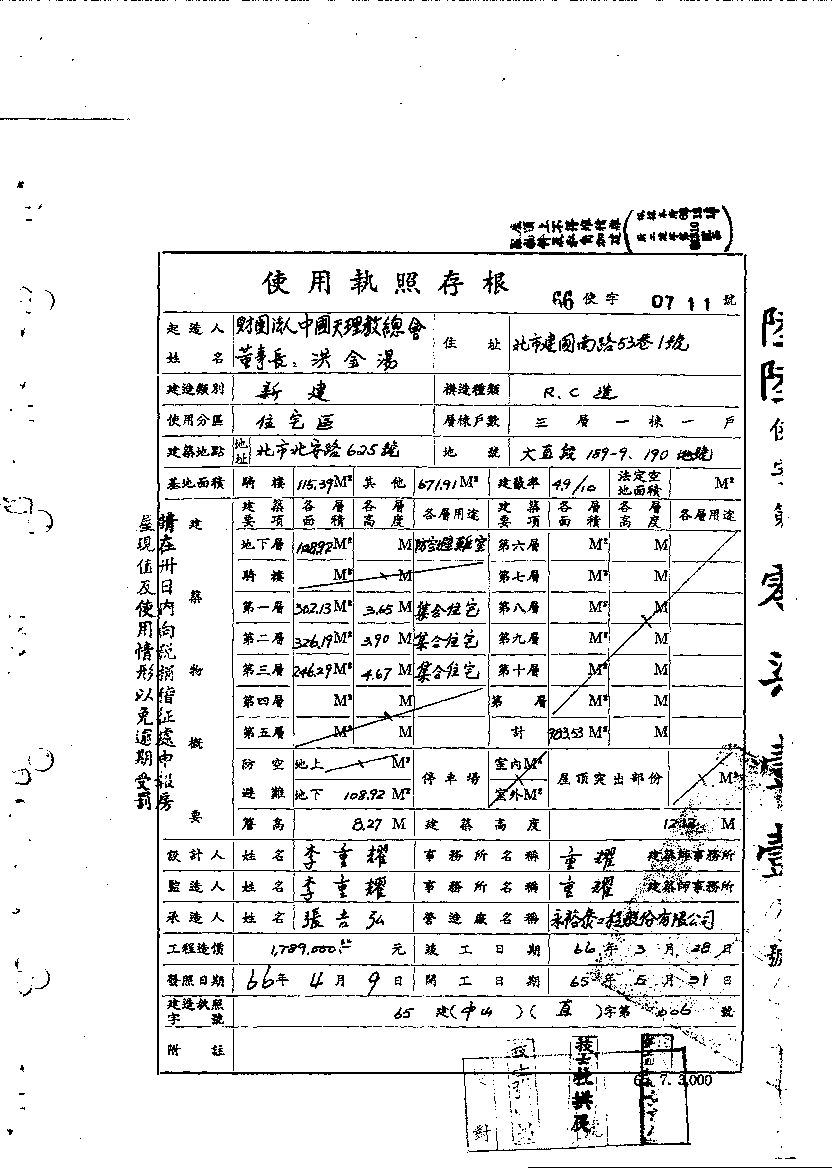 使用執照存根
66 使字 0711 號
起造人姓名 財團法人中國天理教總會 董事長：洪金湯 住址 北市建國南路53巷1號
建造類別 新建 構造種類 R.C造
使用分區 住宅區 層棟戶數 三層一棟一戶
建築地點 地址 北市北安路625號 地號 大直段189-9、190地號
基地面積 騎樓 115.39M² 其他 671.91M² 建蔽率 4.9/10 法定空地面積 M²
建築物概要
建築要項 各層面積 各層高度 各層用途 建築要項 各層面積 各層高度 各層用途
地下層 108.92M² M 防空避難室 第六層 M² M
騎樓 M² M 第七層 M² M
第一層 302.13M² 3.65M 集合住宅 第八層 M² M
第二層 326.19M² 3.90M 集合住宅 第九層 M² M
第三層 246.29M² 4.67M 集合住宅 第十層 M² M
第四層 M² M 第 層 M² M
第五層 M² M 計 983.53M² M
防空避難 地上 M² 停車場 室內M² 屋頂突出部份 M²
地下 108.92M² 室外M²
簷高 8.27M 建築高度 M
設計人 姓名 李重耀 事務所名稱 重耀 建築師事務所
監造人 姓名 李重耀 事務所名稱 重耀 建築師事務所
承造人 姓名 張吉弘 營造廠名稱 工程股份有限公司
工程造價 1,789,000 元 竣工日期 66年3月28日
發照日期 66年4月9日 開工日期 65年5月31日
建造執照字號 65建(中山)(直)字第 號
附註
7.3,000
請在卅日內向稅捐稽征處申報房
屋現值及使用情形以免逾期受罰
對